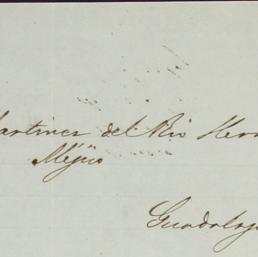 artinez del Rio Her
Mejico
Guadalaj